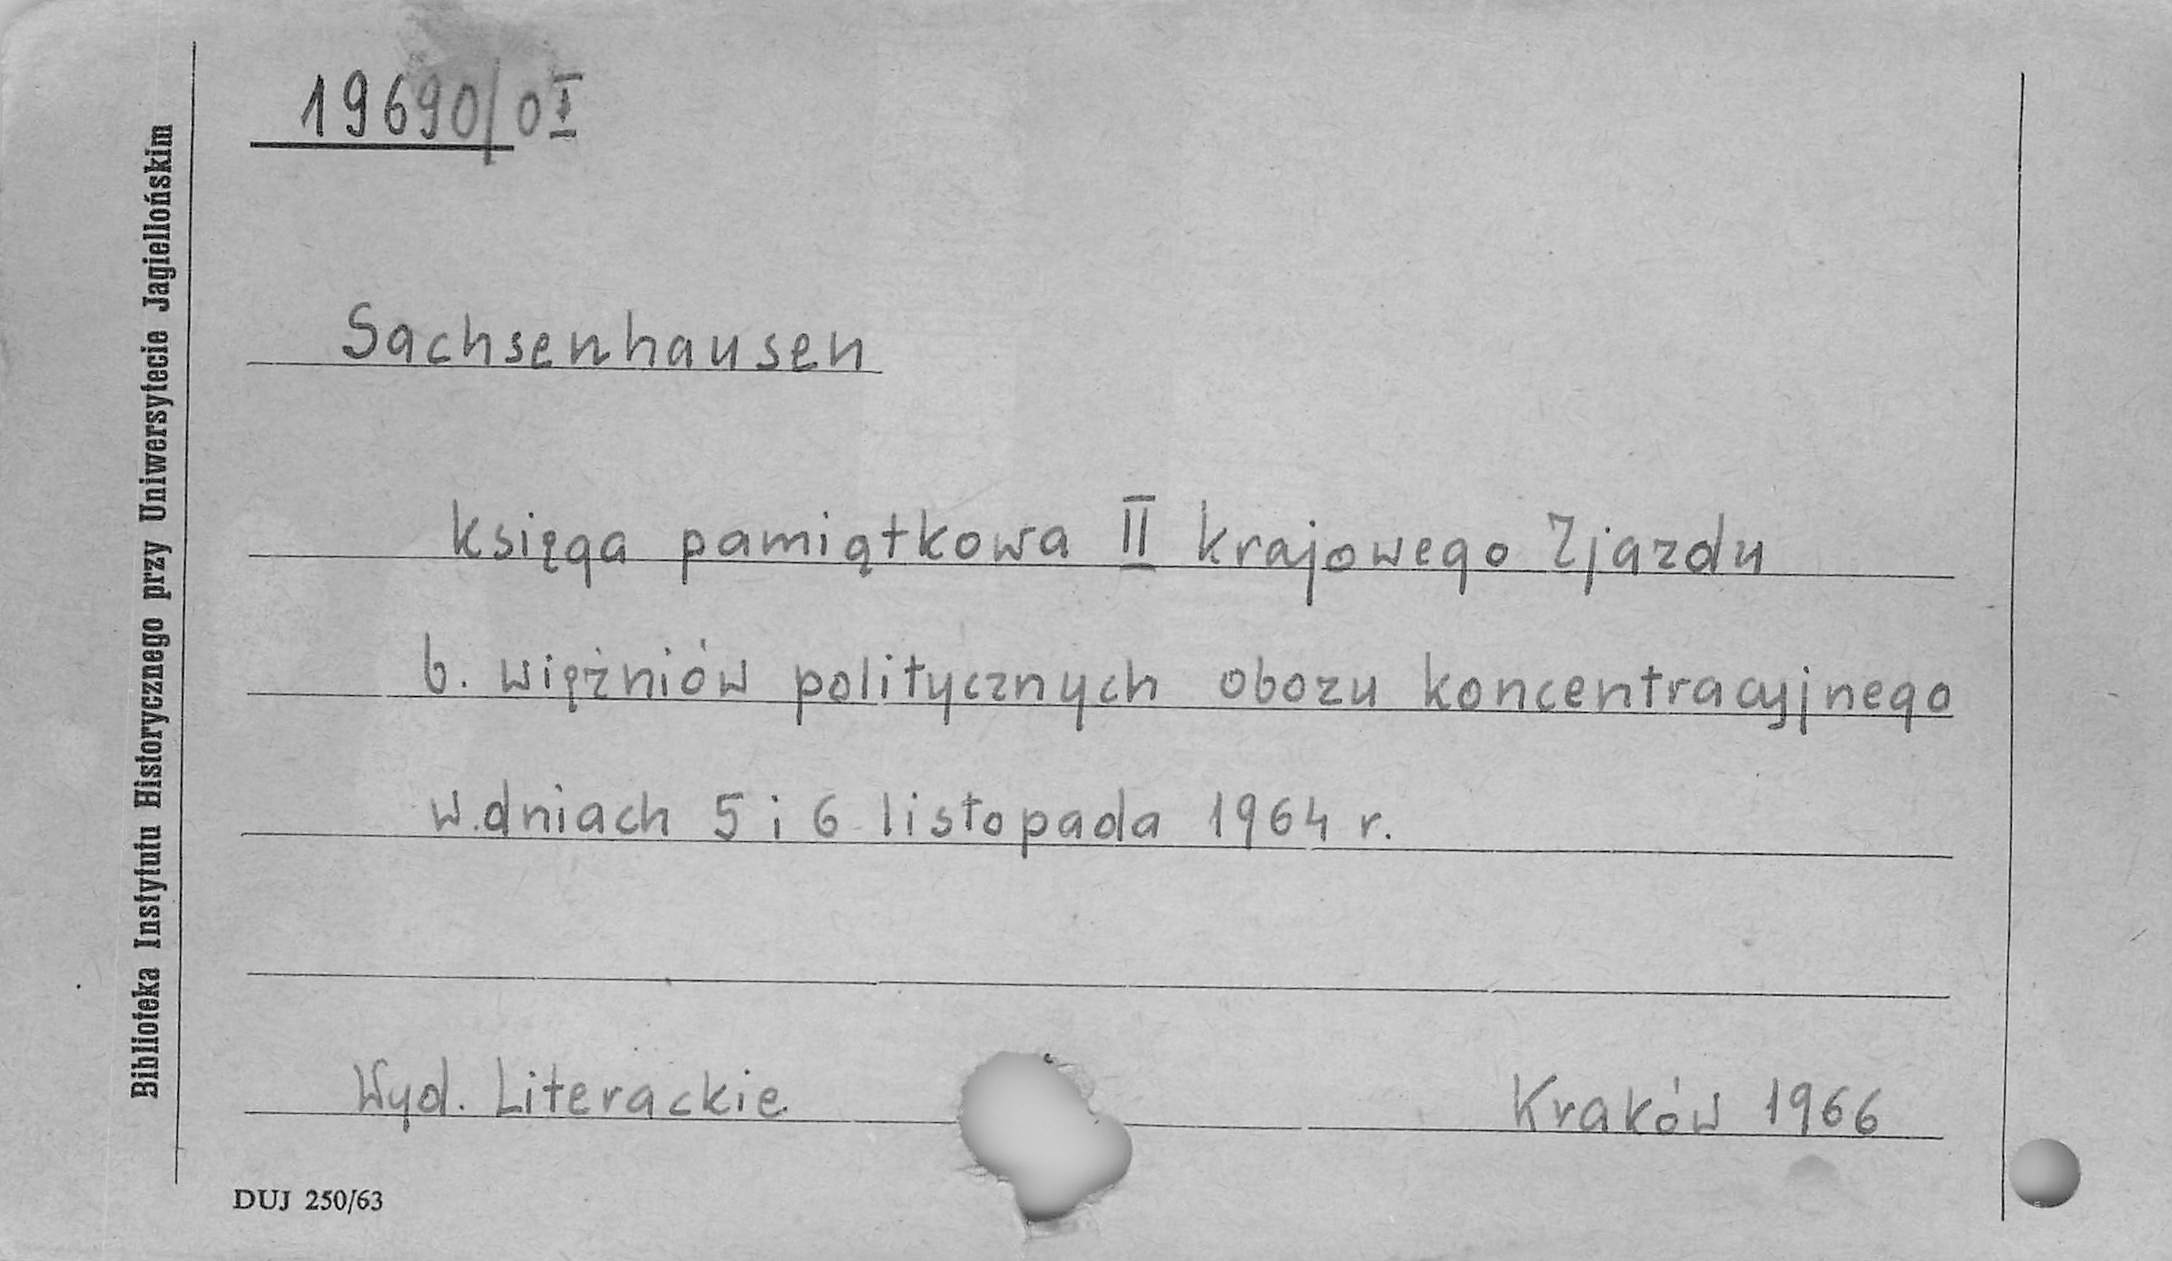 19690/OI
Sachsenhausen
księga pamiątkowa II krajowego Zjazdu
b. więźniów politycznych obozu koncentracyjnego
w dniach 5 i 6 listopada 1964 r.
Wyd. Literackie Kraków 1966
DUJ 250/63
Biblioteka Instytutu Historycznego przy Uniwersytecie Jagiellońskim